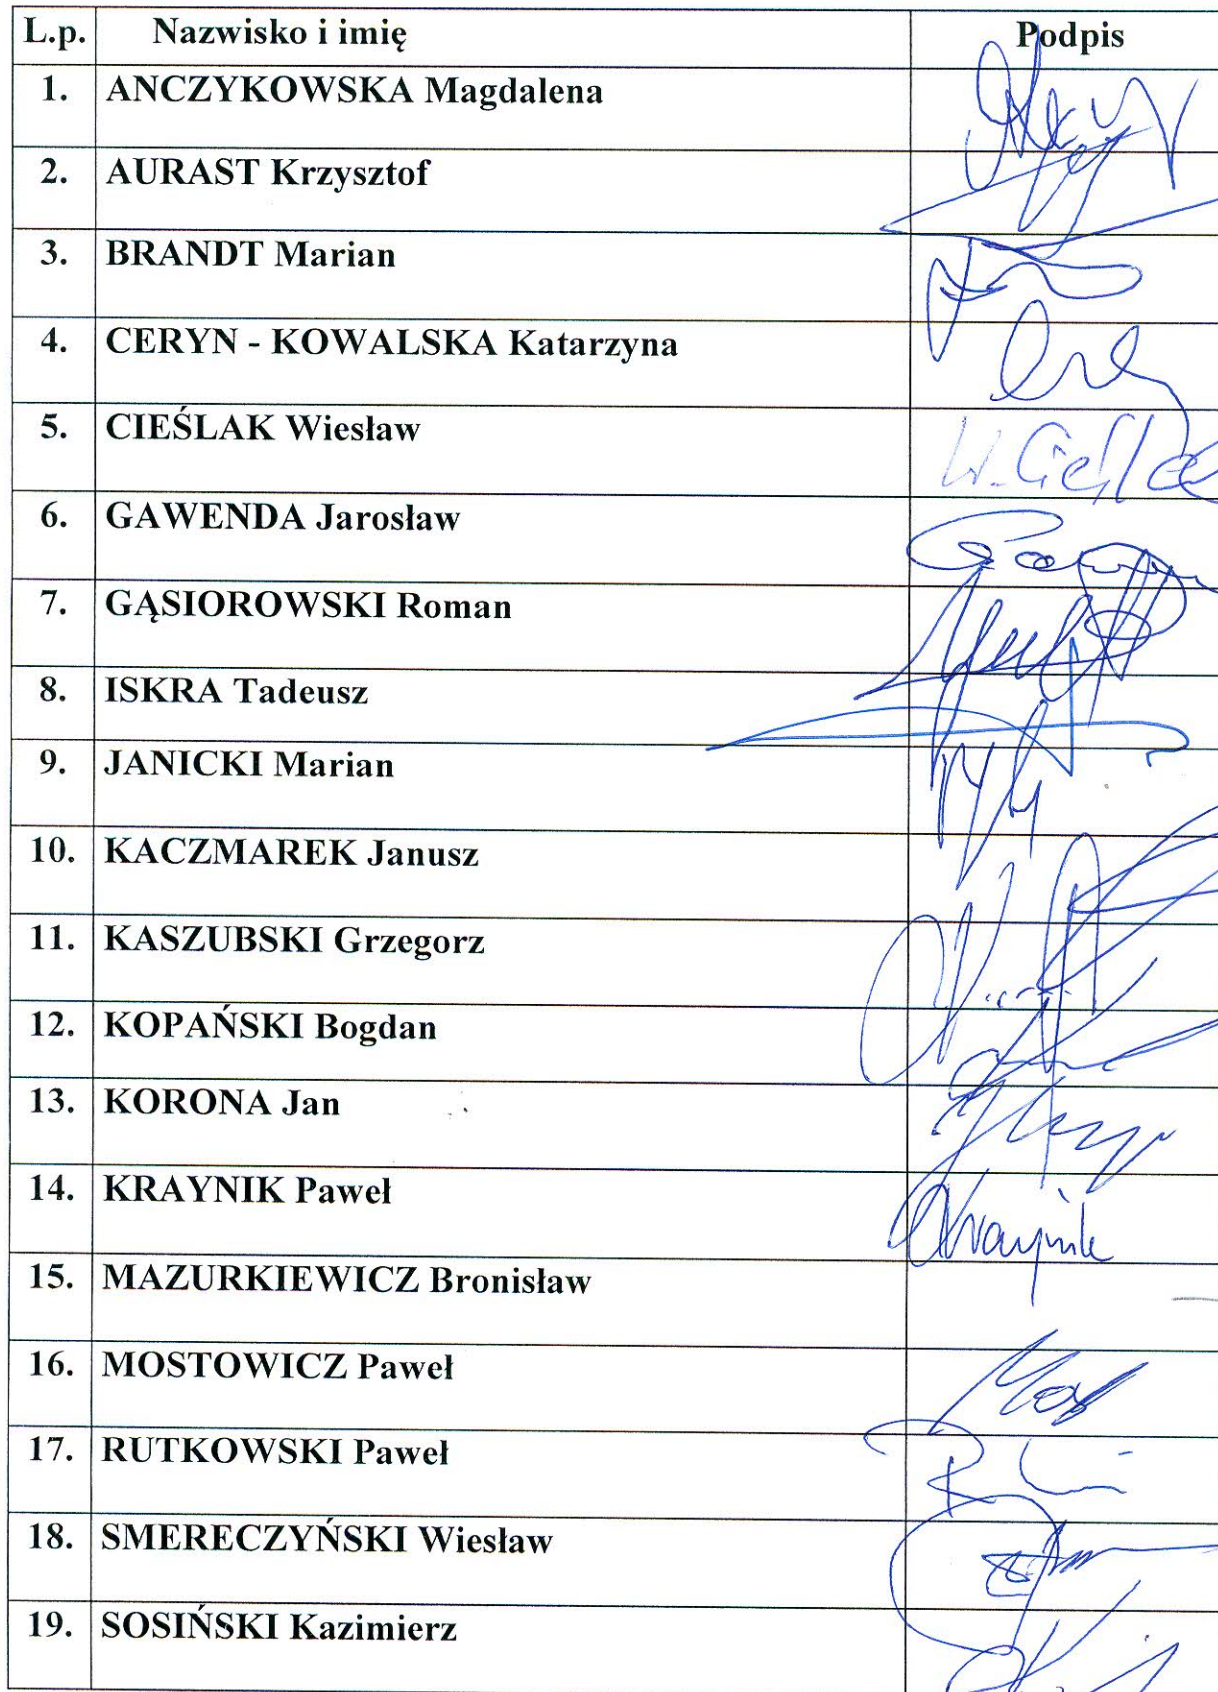 L.p. Nazwisko i imię Podpis
1. ANCZYKOWSKA Magdalena
2. AURAST Krzysztof
3. BRANDT Marian
4. CERYN - KOWALSKA Katarzyna
5. CIEŚLAK Wiesław
6. GAWENDA Jarosław
7. GĄSIOROWSKI Roman
8. ISKRA Tadeusz
9. JANICKI Marian
10. KACZMAREK Janusz
11. KASZUBSKI Grzegorz
12. KOPAŃSKI Bogdan
13. KORONA Jan
14. KRAYNIK Paweł Kraynik
15. MAZURKIEWICZ Bronisław
16. MOSTOWICZ Paweł
17. RUTKOWSKI Paweł
18. SMERECZYŃSKI Wiesław
19. SOSIŃSKI Kazimierz